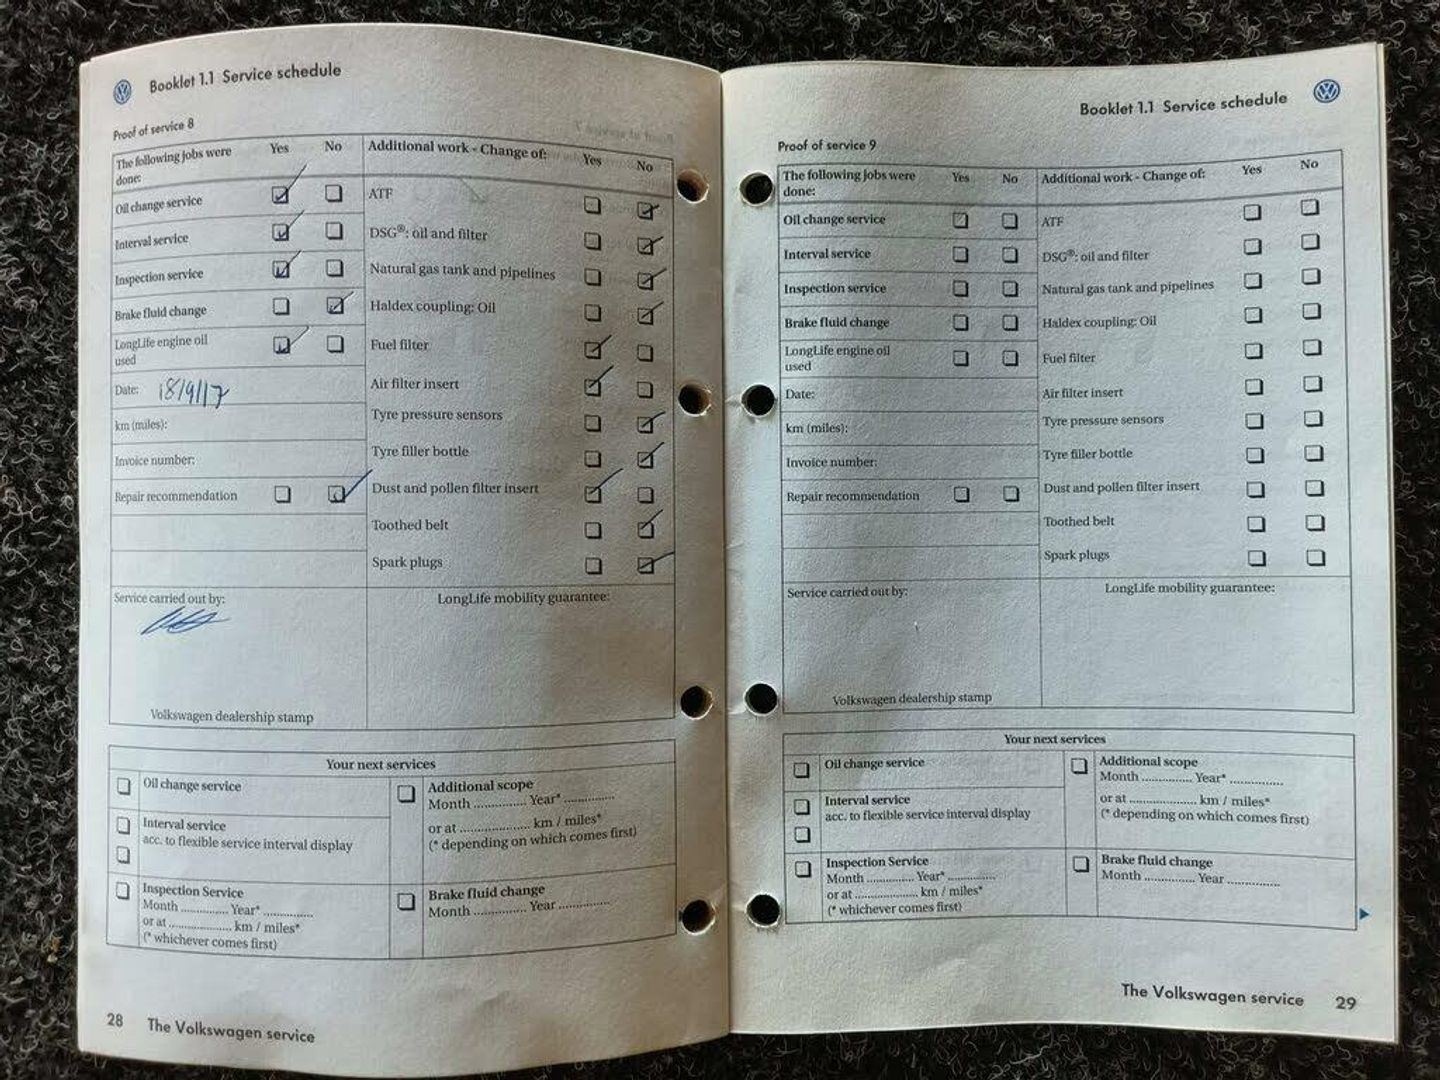 Booklet 1.1 Service schedule
Proof of service 8
The following jobs were done: Yes No
Oil change service
Interval service
Inspection service
Brake fluid change
LongLife engine oil used
Date: 18/9/17
km (miles):
Invoice number:
Repair recommendation
Additional work - Change of: Yes No
ATF
DSG®: oil and filter
Natural gas tank and pipelines
Haldex coupling: Oil
Fuel filter
Air filter insert
Tyre pressure sensors
Tyre filler bottle
Dust and pollen filter insert
Toothed belt
Spark plugs
Service carried out by:
Volkswagen dealership stamp
LongLife mobility guarantee:
Your next services
Oil change service
Interval service
acc. to flexible service interval display
Inspection Service
Month .............. Year* ..............
or at ...................... km / miles*
(* whichever comes first)
Additional scope
Month .............. Year* ..............
or at ...................... km / miles*
(* depending on which comes first)
Brake fluid change
Month .............. Year ..............
28 The Volkswagen service
Booklet 1.1 Service schedule
Proof of service 9
The following jobs were done: Yes No
Oil change service
Interval service
Inspection service
Brake fluid change
LongLife engine oil used
Date:
km (miles):
Invoice number:
Repair recommendation
Additional work - Change of: Yes No
ATF
DSG®: oil and filter
Natural gas tank and pipelines
Haldex coupling: Oil
Fuel filter
Air filter insert
Tyre pressure sensors
Tyre filler bottle
Dust and pollen filter insert
Toothed belt
Spark plugs
Service carried out by:
Volkswagen dealership stamp
LongLife mobility guarantee:
Your next services
Oil change service
Interval service
acc. to flexible service interval display
Inspection Service
Month .............. Year* ..............
or at ...................... km / miles*
(* whichever comes first)
Additional scope
Month .............. Year* ..............
or at ...................... km / miles*
(* depending on which comes first)
Brake fluid change
Month .............. Year ..............
The Volkswagen service 29